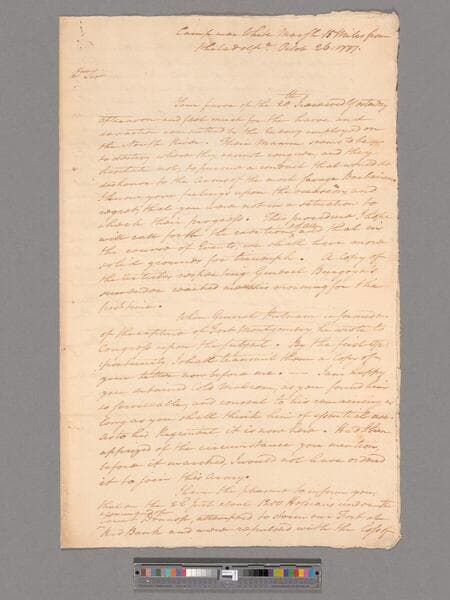 Camp near White Marsh 15 Miles from
Philadelpª Octob 26. 1777.
Dr Sir
Your favor of the 20th I received Yesterday
afternoon and feel much for the havoc and
devastation committed by the Enemy employed on
the North River. Their Maxim seems to be
to destroy where they cannot conquer and they
hesitate not, to pursue a conduct that would do
dishonor to the Arms of the most savage Barbarians.
I know your feelings upon the and
regret, that you were not in a situation to
check their progress. This procedure I hope
will call forth the of all, and that in
the course of Events, we shall have more
solid grounds for triumph. A Copy of
the Articles respecting General Burgoyne's
surrender reached me this morning for the
first time.
When General Putnam informed me
of the capture of Fort Montgomery he wrote to
Congress upon the subject. By the first Op
portunity I shall transmit them a Copy of
your Letter now before me. — I am happy
you detained Colo Malcom, as you found him
so serviceable, and consent to his remaining as
long as you shall think him of essential use.
As to his Regiment it is now here. Had I been
apprized of the circumstance you mention
before it marched, I would not have ordered
it to join this army.
I have the pleasure to inform you
that on the 22d Inst about 1200 Hessians under the
command of
Count Donnop, attempted to storm our Fort at
Red Bank and were repulsed with the loss of